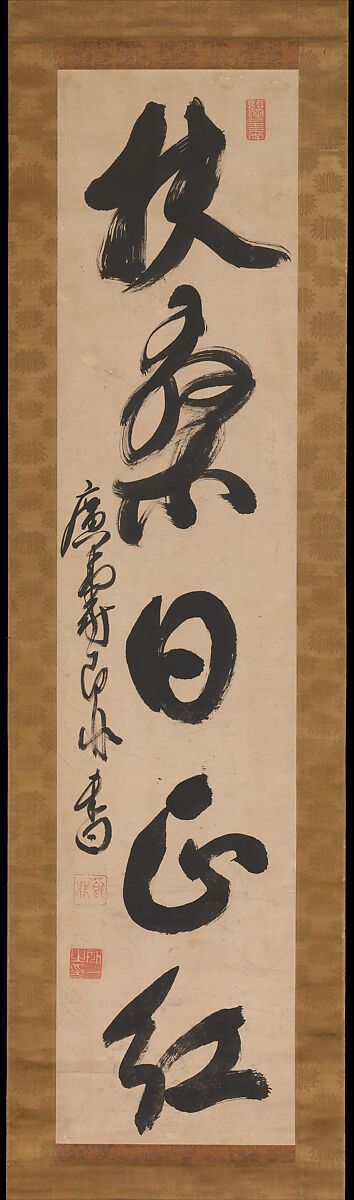 扶桑日正紅
廣壽即非書